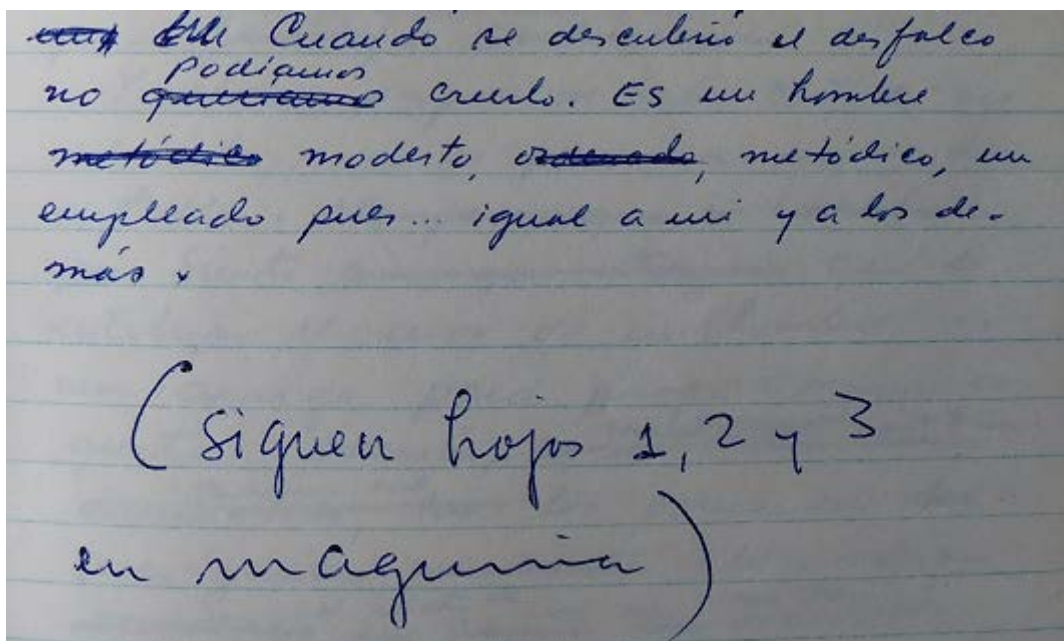 Cuando se descubrió el desfalco
podíamos
no queríamos creerlo. ES un hombre
metódico modesto, ordenado, metódico, un
empleado pues... igual a mi y a los de-
más.
(siguen hojas 1, 2 y 3
en maquina)